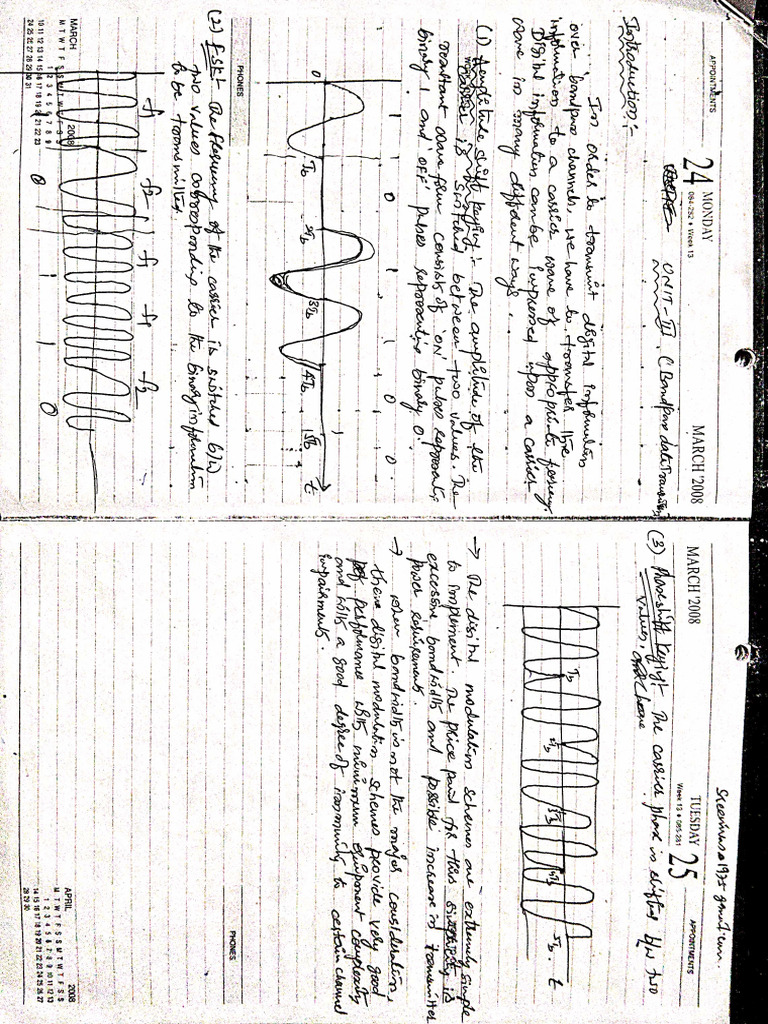 APPOINTMENTS
24 MONDAY
084-282 • Week 13
MARCH 2008
UNIT-III (Bandpass data Transmission
Introduction:-
In order to transmit digital information
over bandpass channels, we have to transfer the
information to a carrier wave of appropriate
Digital information can be impressed upon a carrier
wave in many different ways.
(1) Amplitude shift keying:- The amplitude of the
is switched between two values. The
resultant wave form consists of 'ON' pulses
binary 1 and 'OFF' pulses representing binary 0.
1 0 1 1 0 0
0 Tb 2Tb 3Tb 4Tb 5Tb t
PHONES
(2) FSK:- The frequency of the carrier is switched b/w
two values corresponding to the binary information
to be transmitted.
f1 f2 f1 f1 f2
0 1 1 0
MARCH 2008
M T W T F S S M T W T F S S
1 2 3 4 5 6 7 8 9
10 11 12 13 14 15 16 17 18 19 20 21 22 23
24 25 26 27 28 29 30 31
MARCH 2008
TUESDAY 25
Week 13 • 085-281
APPOINTMENTS
(3) Phase shift keying:- The carrier phase is shifted b/w two
values,
Tb 2Tb 3Tb 4Tb 5Tb t
→ The digital modulation schemes are extremely simple
to implement. The price paid for this simplicity is
excessive bandwidth and possible increase in transmitter
power requirement.
→ when bandwidth is not the major consideration,
these digital modulation schemes provide very good
performance with minimum equipment complexity
and with a good degree of immunity to certain channel
impairments.
PHONES
APRIL 2008
M T W T F S S M T W T F S S
1 2 3 4 5 6 7 8 9 10 11 12 13
14 15 16 17 18 19 20 21 22 23 24 25 26 27
28 29 30